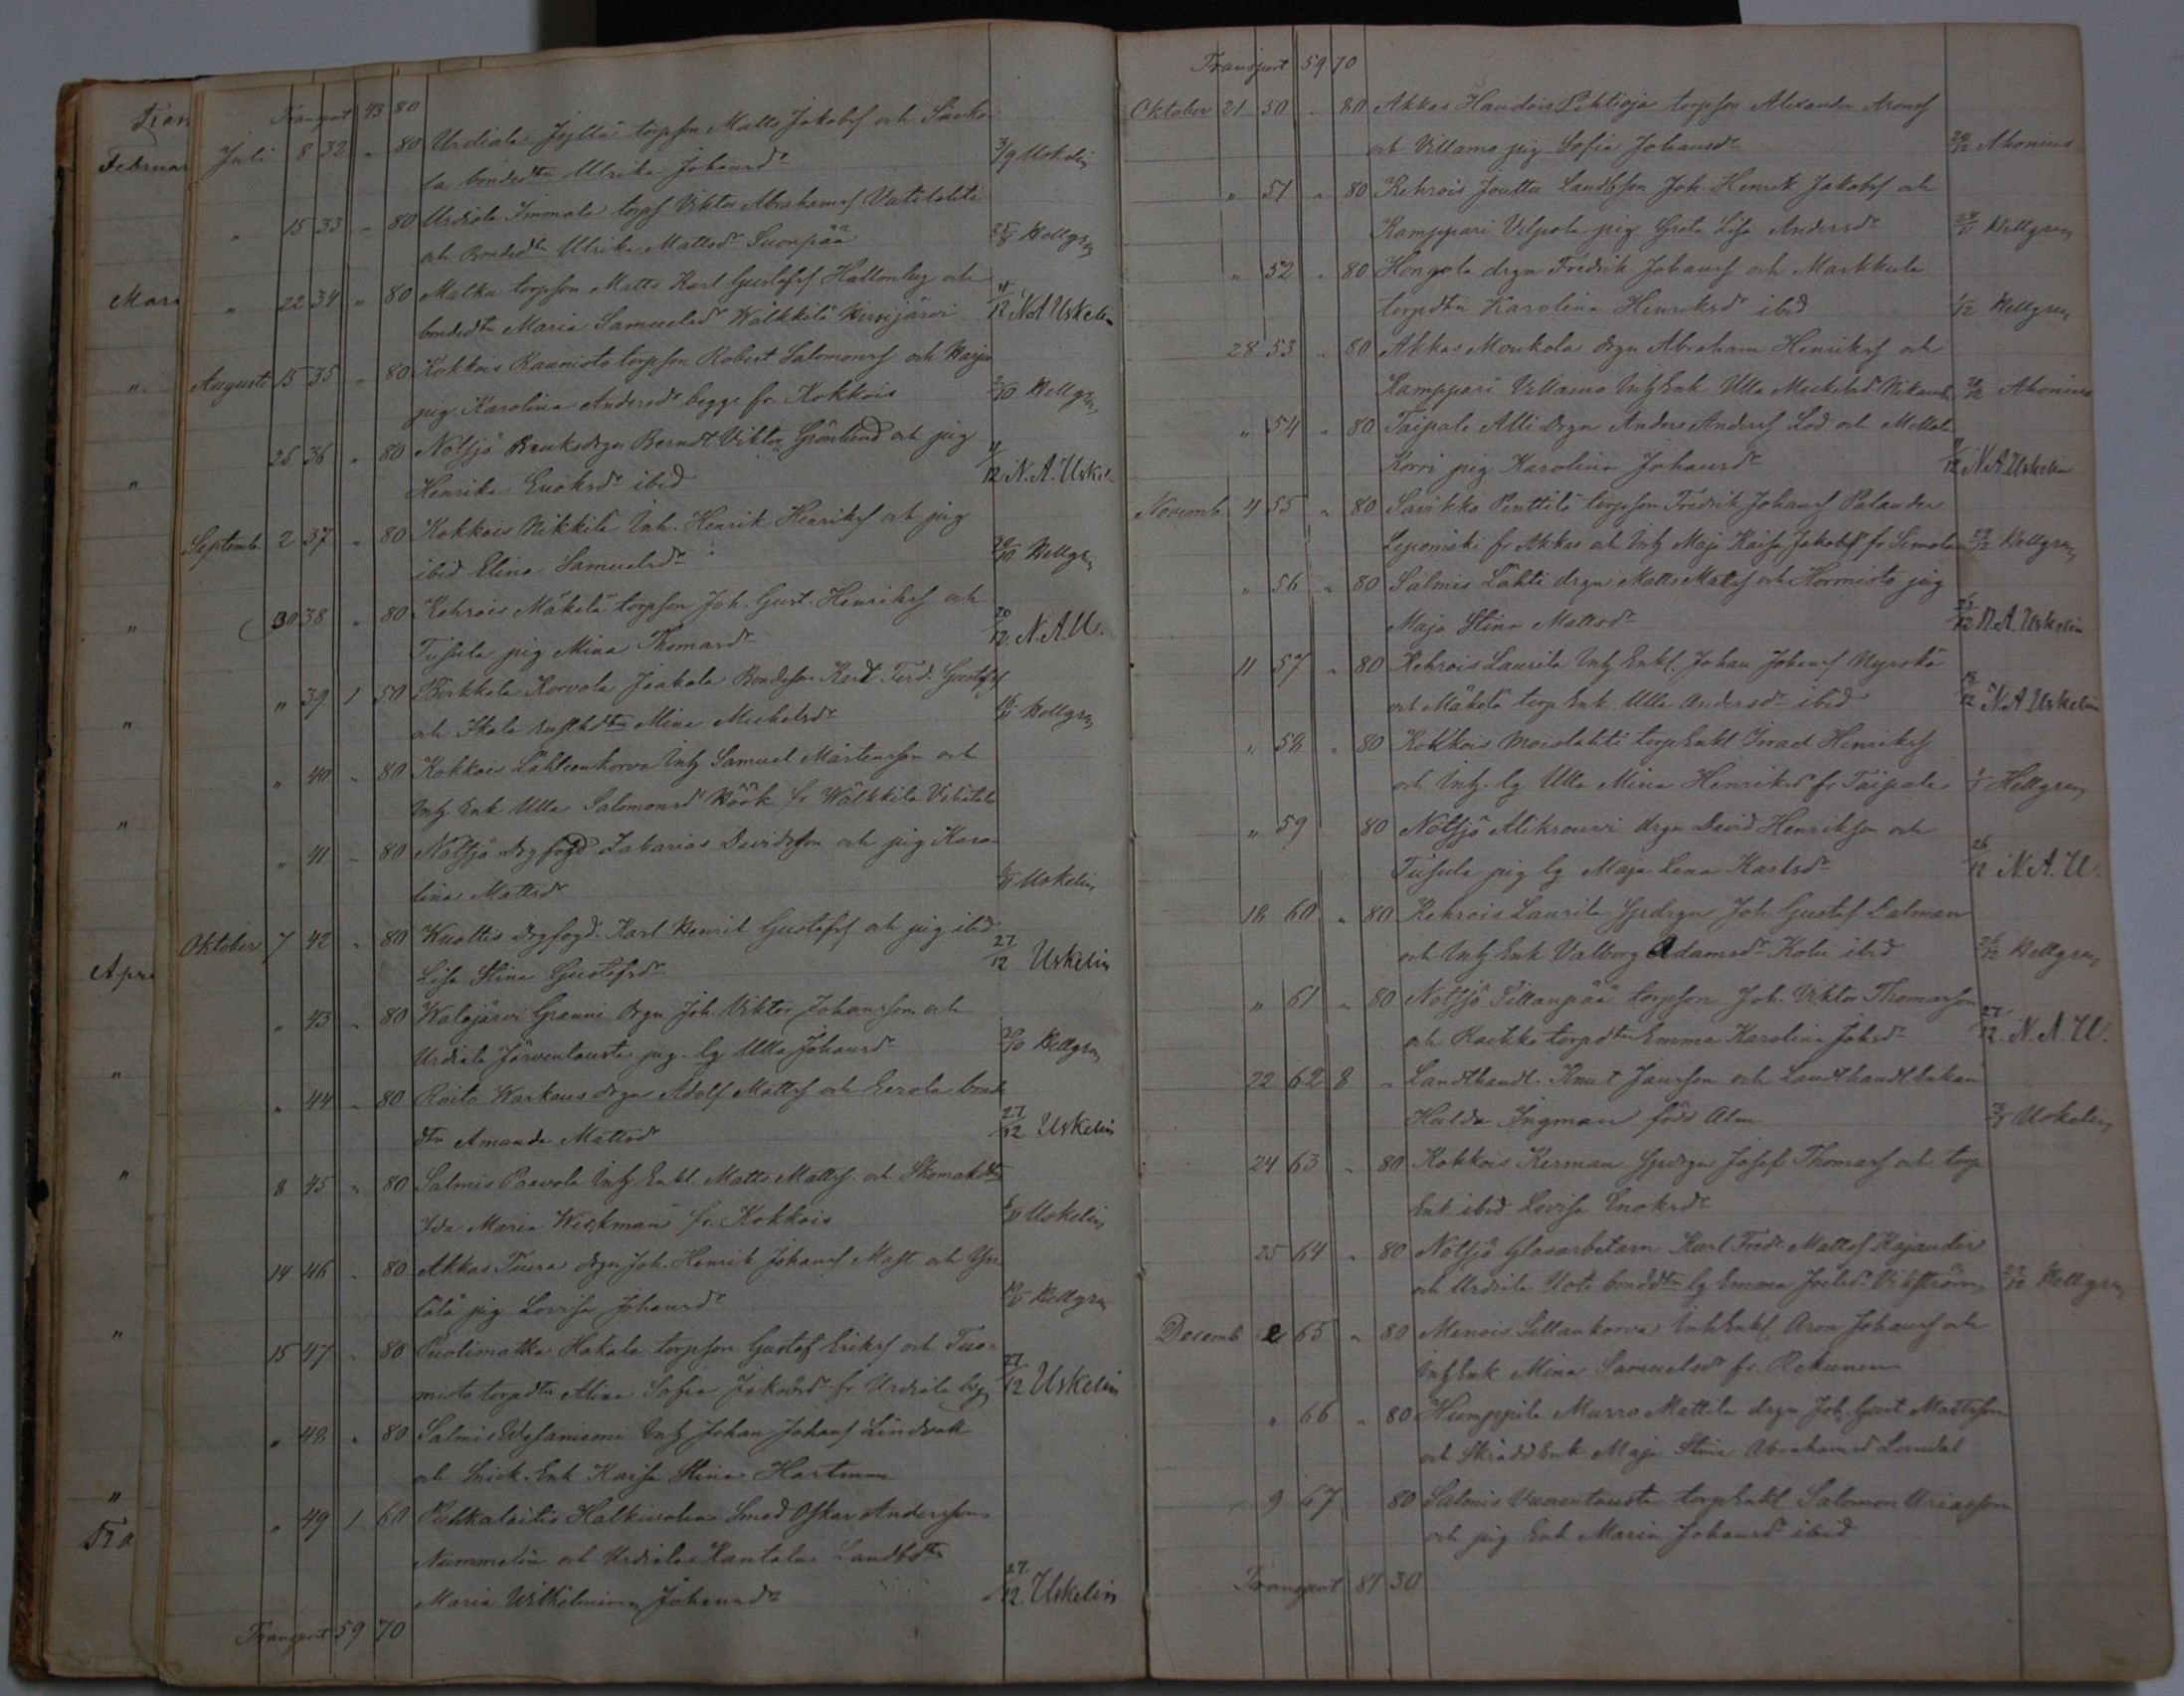 Tran
Februar
Mars
"
"
"
"
"
Apri
"
"
"
"
Tra
Transport 43 80
Juli 8 32 " 80 Urdiala Jyllä torpson Matts Jakobss och
la bondedtn Ulrika Johansdr 3/9 Uskelin
" 15 33 " 80 Urdiala Immala torps Viktor Abrahamss Vatilahti
och Bondedtn Ulrika Mattsdr Suonpää 25/8 Hellgren
" 22 34 " 80 Matku torpson Matts Karl Gustafss Hallonley och
bondedtn Maria Samuelsdr Wälkkilä Kirsijärvi 4/12 N.A Uskelin
Augusti 15 35 " 80 Kokkois Raunisto torpson Robert Salomonss och Harju
pig Karolina Andersdr begge fr. Kokkois 2/10 Hellgren
25 36 " 80 Notsjö Bruksdrgn Berndt Viktor Grönlund och pig
Henrika Enoksdr ibid 4/12 N. A. Uskel
Septemb. 2 37 " 80 Kokkois Nikkilä Inh. Henrik Henrikss och pig
ibid Elina Samuelsdr 30/10 Hellgren
30 38 " 80 Kehrois Mäkelä torpson Joh. Gust. Henrikss och
Susula pig Mina Thomasdr 20/12 N. A. U.
" 39 1 50 Birkkala Korvola Jaakola Bondeson Karl Ferd. Gustafss
och Skola rusthdtn Mina Michelsdr 10/11 Hellgren
" 40 " 80 Kokkois Lähteenkorva Inh Samuel Mårtensson och
Inh Enk Ulla Salomonsdr Höök fr Wälkkilä
" 41 " 80 Notsjö Drgfogd Zakarias Davidsson och pig Karo-
lina Mattsdr 6/11 Uskelin
Oktober 7 42 " 80 Kuoltis Drgfogd. Karl Henrik Gustafss och pig ibid
Lisa Stina Gustafsdr 27/12 Uskelin
" 43 " 80 Walajärvi Granni drgn Joh. Viktor Johansson och
Urdiala Järventausta pig. lg Ulla Johansdr 30/10 Hellgren
" 44 " 80 Raito Warkaus drgn Adolf Mattss och Eerola bonde
dtn Amanda Mattsdr 27/12 Uskelin
8 45 " 80 Salmis Paavola Inh. Enkl. Matts Mattss. och Skomakdtn
Ida Maria Wickman fr. Kokkois 6/11 Uskelin
14 46 " 80 Akkas Tuera drgn Joh. Henrik Johanss Mast och
pig Lovisa Johansdr 10/11 Hellgren
15 47 " 80 Puolimatka Hakala torpson Gustaf Erikss och Tuo-
misto torpdtn Alina Sofia Jakobsdr fr Urdiala 27/12 Uskelin
" 48 " 80 Salmis Inh Johan Johanss Lindvall
och Snick. Enk Kaisa Stina Hartman
" 49 1 60 Halkivaha Smed Oskar Andersson
Nummelin och Urdiala Rantala Landbdtn
Maria Wilhelmina Johansdr 27/12 Uskelin
Transport 59 70
Transport 59 70
Oktober 21 50 " 80 Akkas Haudois Pihtioja torpson Alexander Aronss
och Villamo pig Sofia Johansdr 29/12 Ahonius
" 51 " 80 Kehrois Joutta Landbson Joh. Henrik Jakobss och
Kamppari Vilpola pig Greta Lisa Andersdr 24/11 Hellgren
" 52 " 80 Hongola drgn Fredrik Johanss och Markkula
torpdtn Karolina Henriksdr ibid 1/12 Hellgren
28 53 " 80 Akkas Moukola drgn Abraham Henrikss och
Kamppari Villamo Inh Enk Ulla Mickelsdr Nikander 29/12 Ahonius
" 54 " 80 Taipale Alli Drgn Anders Anderss Lod och Mellola
Korri pig Karolina Johansdr 9/12 N.A. Uskelin
Novemb. 4 55 " 80 Savikko Penttilä torpson Fredrik Johanss Palander
Leponiski fr Akkas och Inh Maja Kaisa Jakobsd fr Simola 29/12 Hellgren
" 56 " 80 Salmis Lahti drgn Matts Matss och Hormisto pig
Maja Stina Mattsdr 26/12 N.A. Uskelin
11 57 " 80 Kehrois Laurila Inh Enkl. Johan Johanss Nyrskä
och Mäkelä torp Enk Ulla Andersdr ibid 18/12 N.A Uskelin
" 58 " 80 Kokkois Moislahti torp Enkl Israel Henrikss
och Inh. lg Ulla Mina Henriksd fr Taipale 1/1 Hellgren
" 59 80 Notsjö Alikrouvi drgn David Henrikson och
Susula pig lg Maja Lena Karlsdr 26/12 N. A. U.
18 60 " 80 Kehrois Laurila Spdrgn Joh. Gustaf Dalman
och Inh Enk Valborg Adamsdr Kolu ibid 26/12 Hellgren
" 61 " 80 Notsjö Sillanpää torpson Joh. Viktor Thomasson
och Raikko torpdtn Emma Karolina Johsdr 27/12. N. A. U.
22 62 8 " Landthandl. Knut Jansson och Landthandl Enkan
Hulda Ingman född Alm 3/1 Uskelin
24 63 " 80 Kokkois Kerman Spdrgn Josef Thomass och torp
Enk ibid Lovisa Enoksdr
25 64 " 80 Notsjö Glasarbetarn Karl Fredr. Mattss Kajander
och Urdiala Uoti bonddtn lg Emma Joelsd Vikström 29/12 Hellgren
Decemb 2 65 " 80 Menois Sillankorva Inh Enkl Aron Johanss och
Inh Enk Mina Samuelsdr fr. Rekunen
" 66 " 80 Humppila Murro Mattila drgn Joh. Gust Mattsson
och Skrädd Enk Maja Stina Abrahamsd Lundal
9 67 80 Salmis Vuorentausta torp Enkl Salomon Uriasson
och pig Enk Maria Johansdr ibid
Transport 81 30